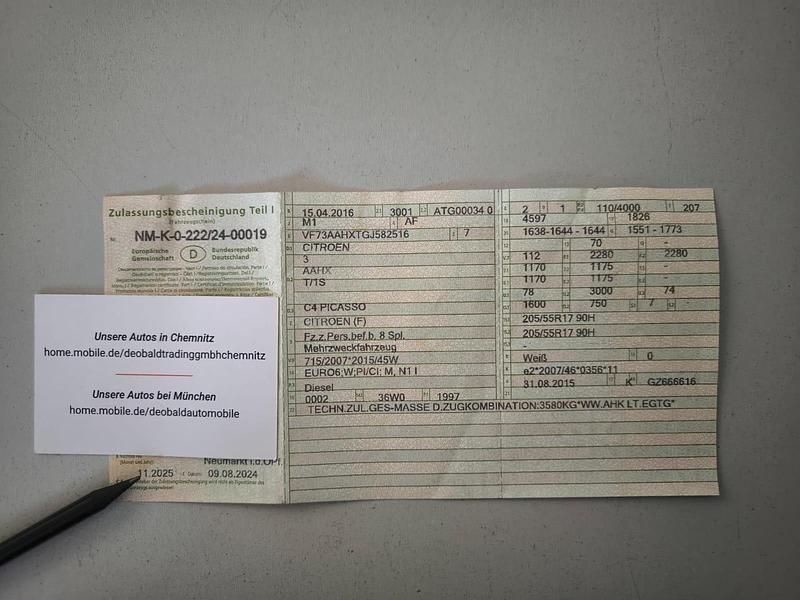 Zulassungsbescheinigung Teil I
(Fahrzeugschein)
Nr. NM-K-0-222/24-00019
Europäische Gemeinschaft
D
Bundesrepublik Deutschland
Unsere Autos in Chemnitz
home.mobile.de/deobaldtradinggmbhchemnitz
Unsere Autos bei München
home.mobile.de/deobaldautomobile
Neumarkt i.d.OPf.
(Monat und Jahr)
11.2025 Datum: 09.08.2024
15.04.2016 3001 ATG00034 0
M1 AF
VF73AAHXTGJ582516 7
CITROEN
3
AAHX
T/1S
C4 PICASSO
CITROEN (F)
Fz.z.Pers.bef.b. 8 Spl.
Mehrzweckfahrzeug
715/2007*2015/45W
EURO6;W;PI/CI; M, N1 I
Diesel
0002 36W0 1997
TECHN.ZUL.GES-MASSE D.ZUGKOMBINATION:3580KG*WW.AHK LT.EGTG*
2 1 110/4000 207
4597 1826
1638-1644 - 1644 1551 - 1773
70 -
112 2280 2280
1170 1175 -
1170 1175 -
78 3000 74
1600 750 7 -
205/55R17 90H
205/55R17 90H
-
Weiß 0
e2*2007/46*0356*11
31.08.2015 K GZ666616